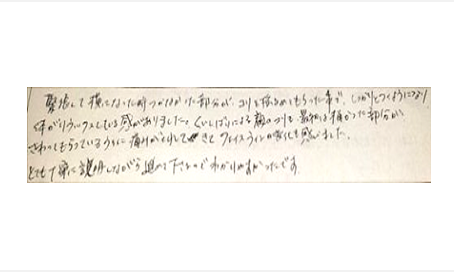 緊張して横になった時つかなかった部分が、コリを揺るめてもらった事で、しっかりとつくようになり
体がリラックスしている感がありました。くいしばりによる顔のコリも最初は痛かった部分が
さわってもらっているうちに痛みがとれてきてフェイスラインの変化も感じました。
とても丁寧に説明しながら進めて下さるのでわかりやすかったです